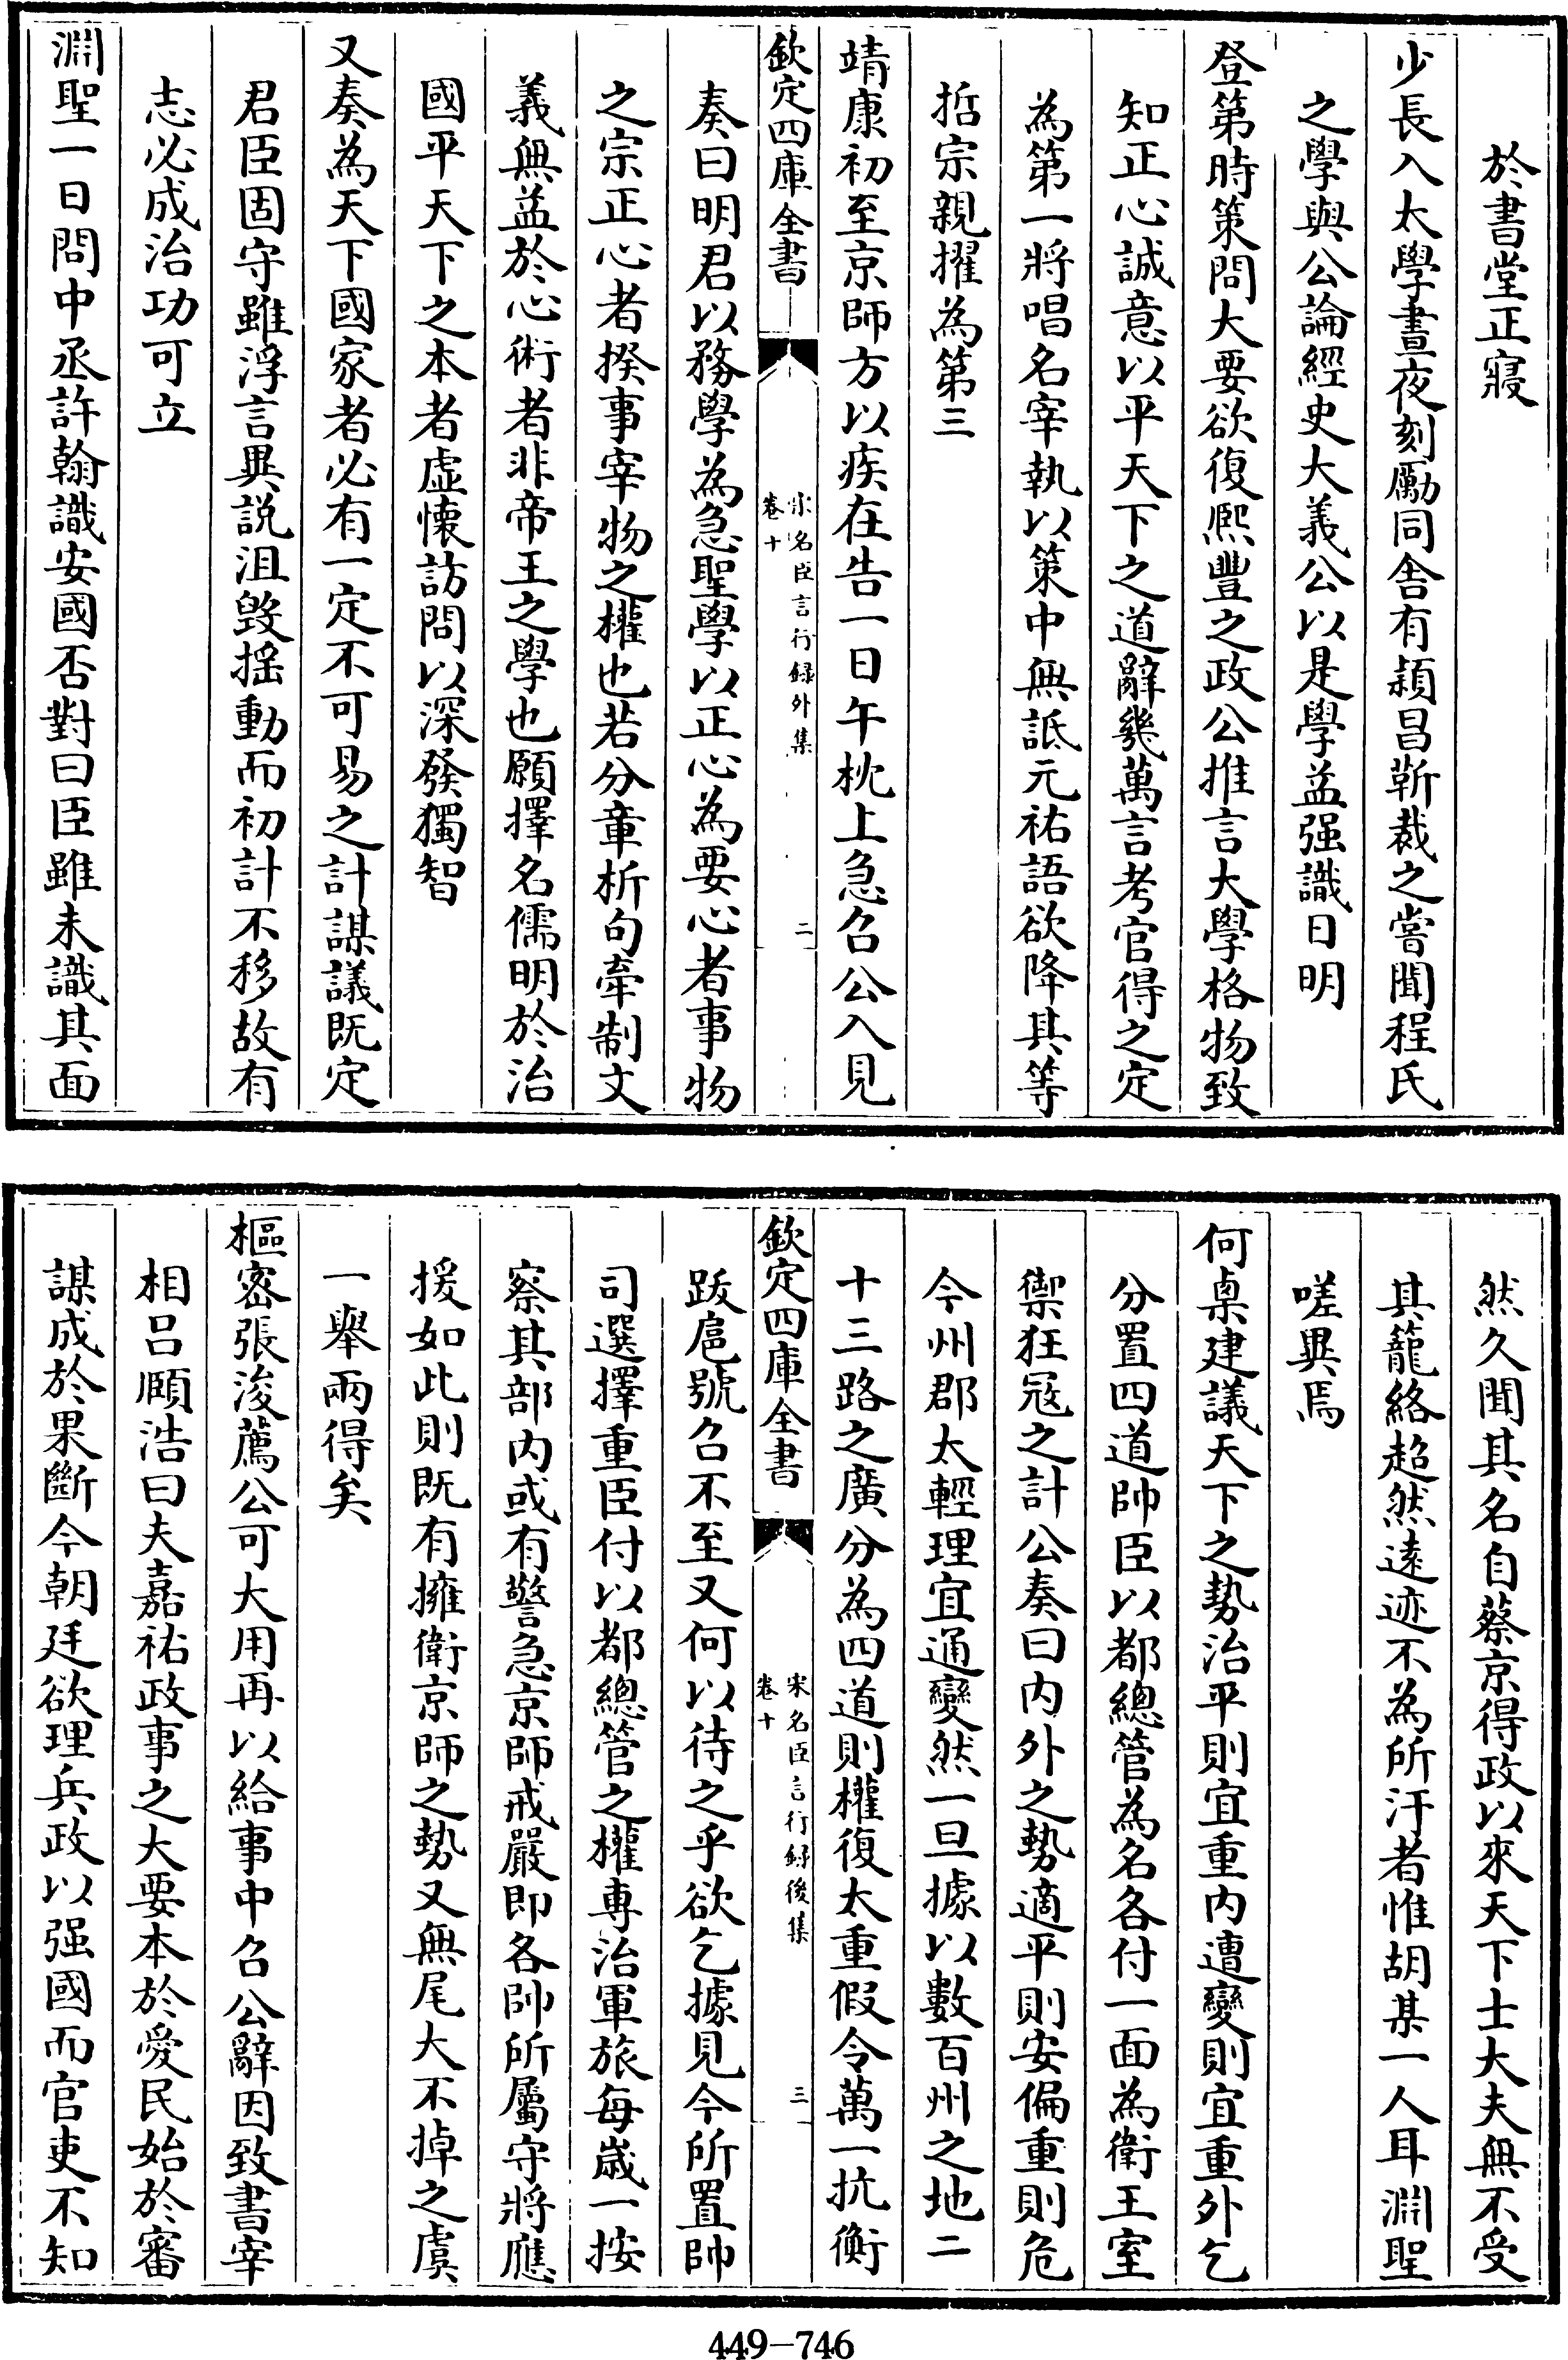 於書堂正寢
少長入太學晝夜刻勵同舎有頴昌靳裁之嘗聞程氏
之學與公論經史大義公以是學益强識日明
登第時策問大要欲復熈豐之政公推言大學格物致
知正心誠意以平天下之道辭幾萬言考官得之定
為第一將唱名宰執以策中無詆元祐語欲降其等
哲宗親擢為第三
靖康初至京師方以疾在告一日午枕上急召公入見
欽定四庫全書
宋名臣言行録外集
卷十
二
奏曰明君以務學為急聖學以正心為要心者事物
之宗正心者揆事宰物之權也若分章析句牽制文
義無益於心術者非帝王之學也願擇名儒明於治
國平天下之本者虚懐訪問以深發獨智
又奏為天下國家者必有一定不可易之計謀議既定
君臣固守雖浮言異説沮毁揺動而初計不移故有
志必成治功可立
淵聖一日問中丞許翰識安國否對曰臣雖未識其面
然久聞其名自蔡京得政以來天下士大夫無不受
其籠絡超然逺迹不為所汙者惟胡某一人耳淵聖
嗟異焉
何㮚建議天下之勢治平則宜重内遭變則宜重外乞
分置四道帥臣以都總管為名各付一面為衛王室
禦狂宼之計公奏曰内外之勢適平則安偏重則危
今州郡太輕理宜通變然一旦據以數百州之地二
十三路之廣分為四道則權復太重假令萬一抗衡
欽定四庫全書
宋名臣言行録後集
卷十
三
跋扈號召不至又何以待之乎欲乞據見今所置帥
司選擇重臣付以都總管之權専治軍旅每歳一按
察其部内或有警急京師戒嚴即各帥所屬守將應
援如此則既有擁衛京師之勢又無尾大不掉之虞
一舉兩得矣
樞宻張浚薦公可大用再以給事中召公辭因致書宰
相吕頤浩曰夫嘉祐政事之大要本於愛民始於審
謀成於果斷今朝廷欲理兵政以强國而官吏不知
449-746